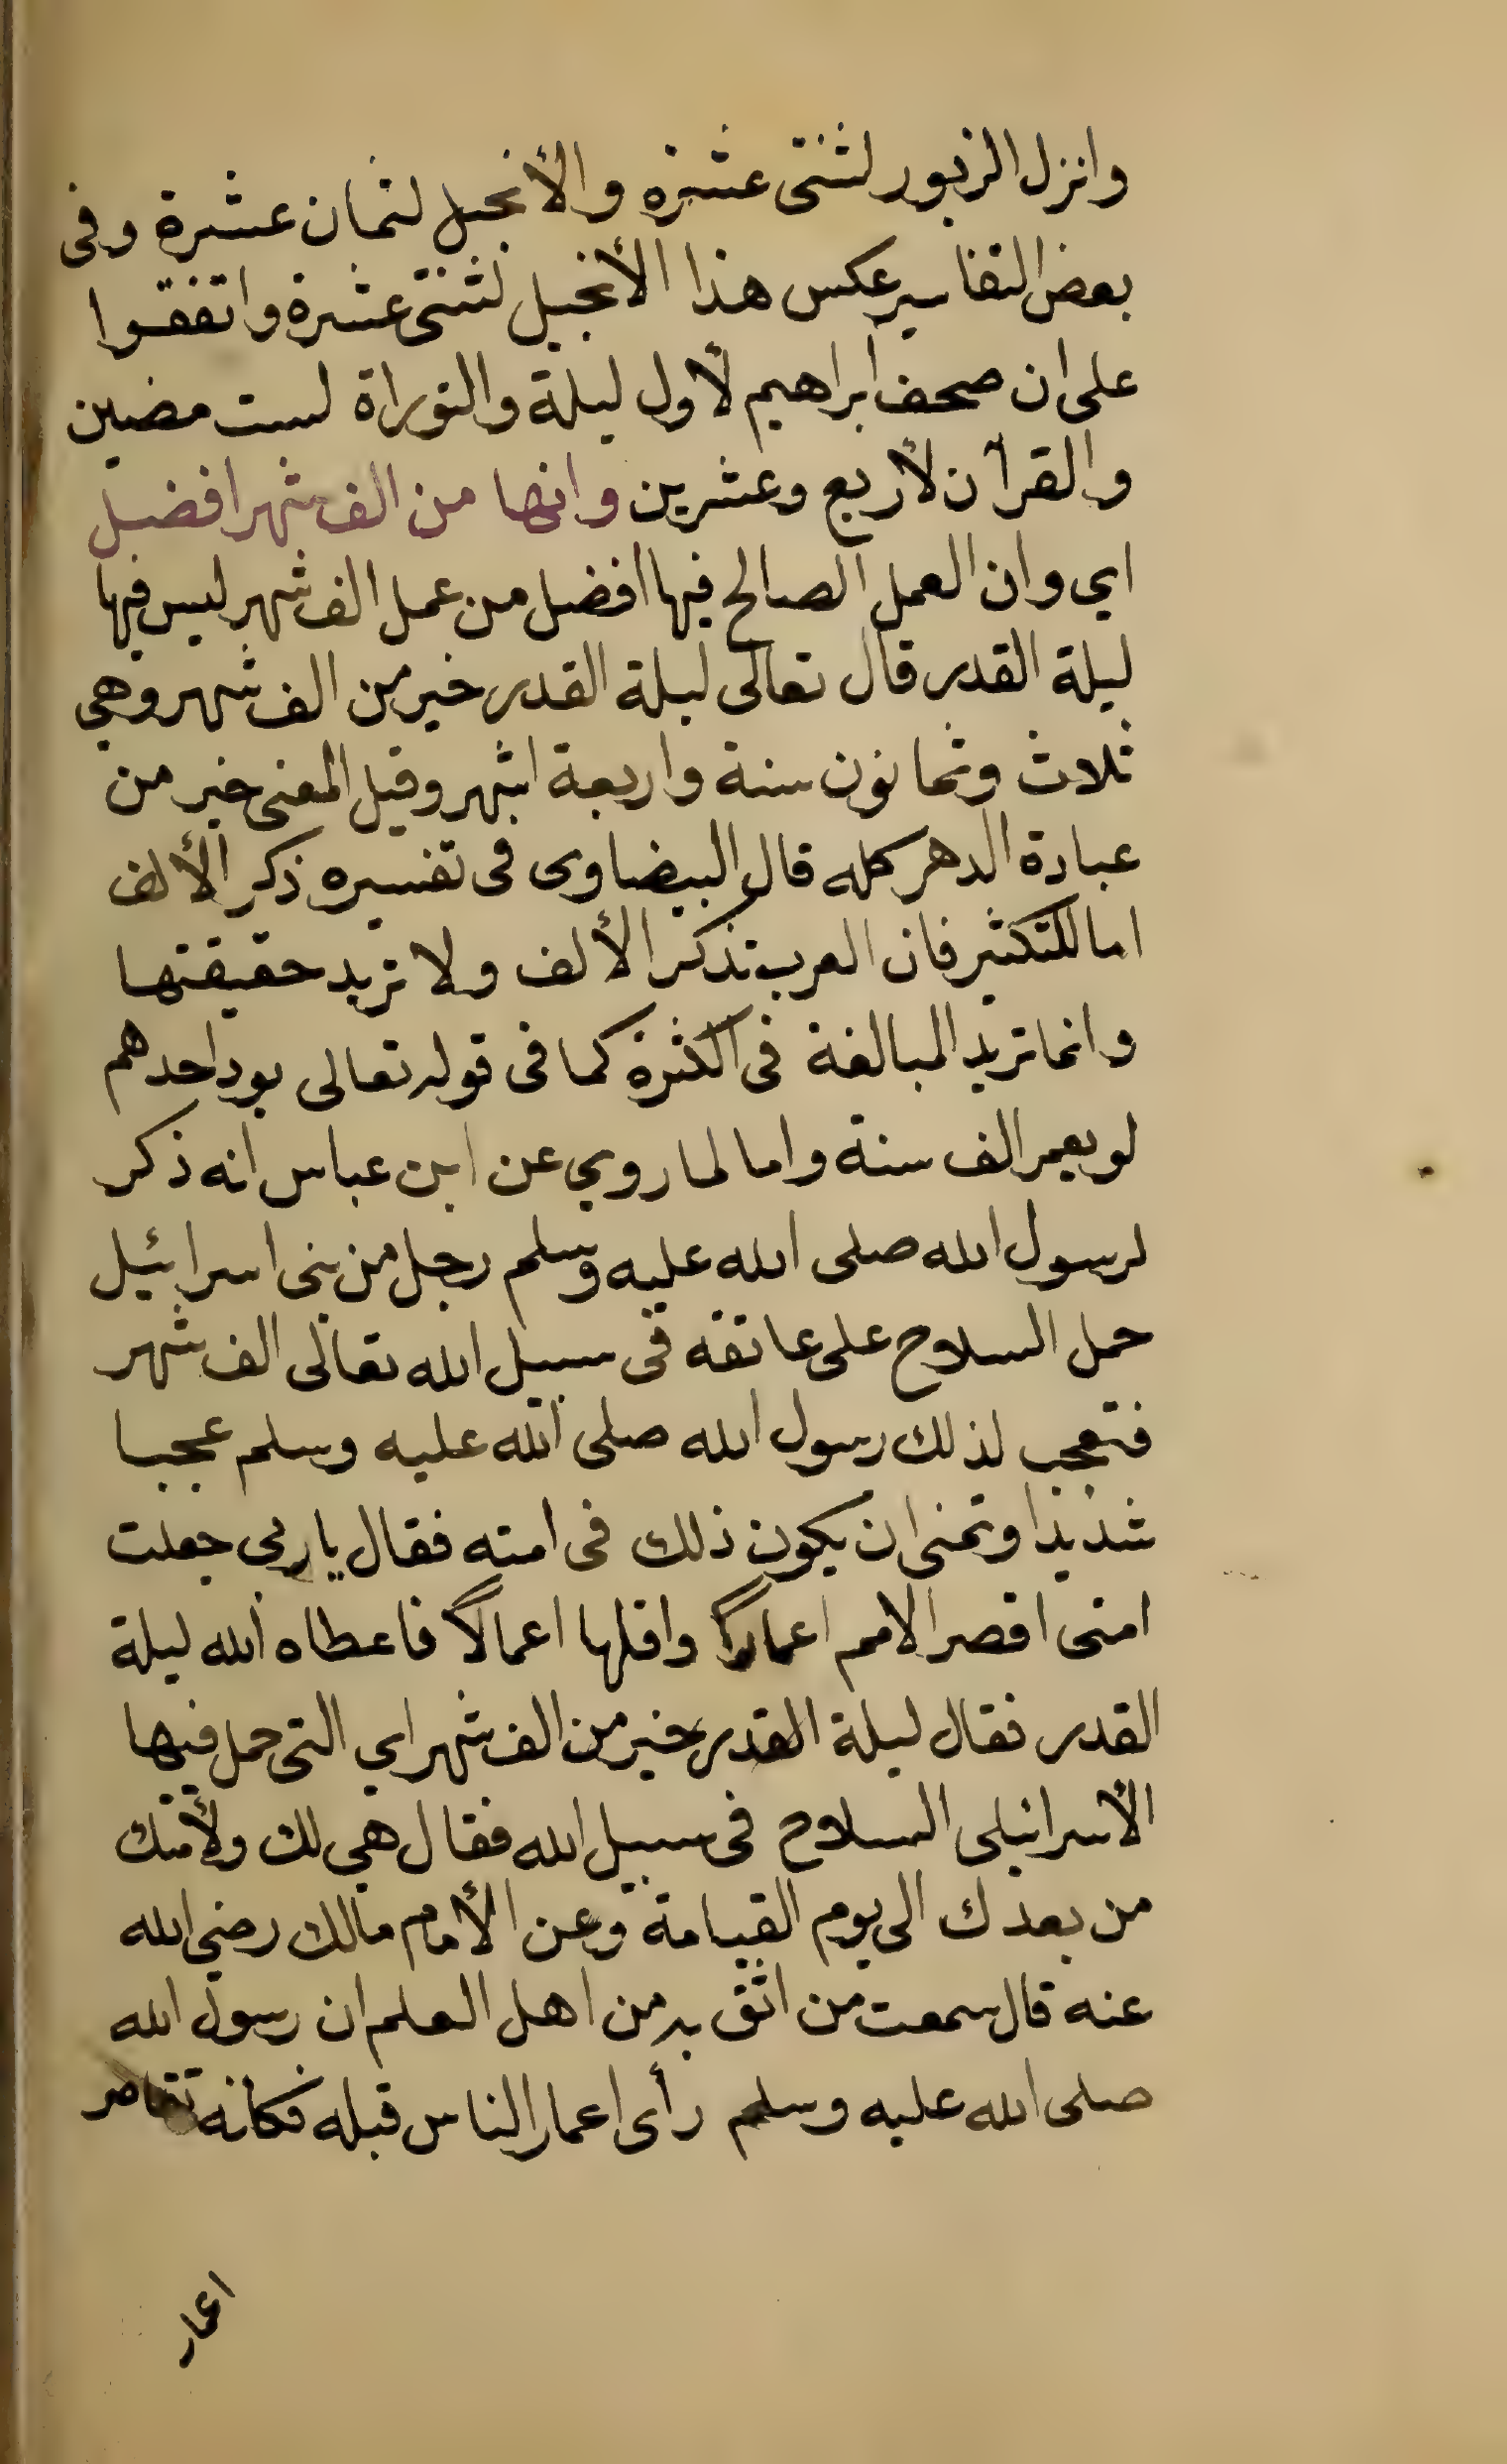 وانزل الزبور لثنتى عشرة والأنجيل لثمان عشرة وفى
بعض التفاسير عكس هذا الأنجيل لثنتى عشرة واتفقوا
على ان صحف ابراهيم لأول ليلة والتوراة لست مضين
والقرآن لأربع وعشرين وانها من الف شهر افضل
اي وان العمل الصالح فيها افضل من عمل الف شهر ليس فيها
ليلة القدر قال تعالى ليلة القدر خير من الف شهر وهي
ثلاث وثمانون سنة واربعة اشهر وقيل المعنى خير من
عبادة الدهر كله قال البيضاوى فى تفسيره ذكر الألف
اما للتكثير فان العرب تذكر الألف ولا تريد حقيقتها
وانما تريد المبالغة فى الكثرة كما فى قوله تعالى يود احدهم
لو يعمر الف سنة واما لما روي عن ابن عباس انه ذكر
لرسول الله صلى الله عليه وسلم رجل من بنى اسرائيل
حمل السلاح على عاتقه فى سبيل الله تعالى الف شهر
فتعجب لذلك رسول الله صلى الله عليه وسلم عجبا
شديدا وتمنى ان يكون ذلك فى امته فقال يا ربى جعلت
امتى اقصر الامم اعمارا واقلها اعمالاً فاعطاه الله ليلة
القدر فقال ليلة القدر خير من الف شهر اي التى حمل فيها
الأسرائيلى السلاح فى سبيل الله فقال هي لك ولأمتك
من بعدك الى يوم القيامة وعن الأمام مالك رضي الله
عنه قال سمعت من اثق به من اهل العلم ان رسول الله
صلى الله عليه وسلم رأى اعمار الناس قبله فكانه تقاصر
اعمار